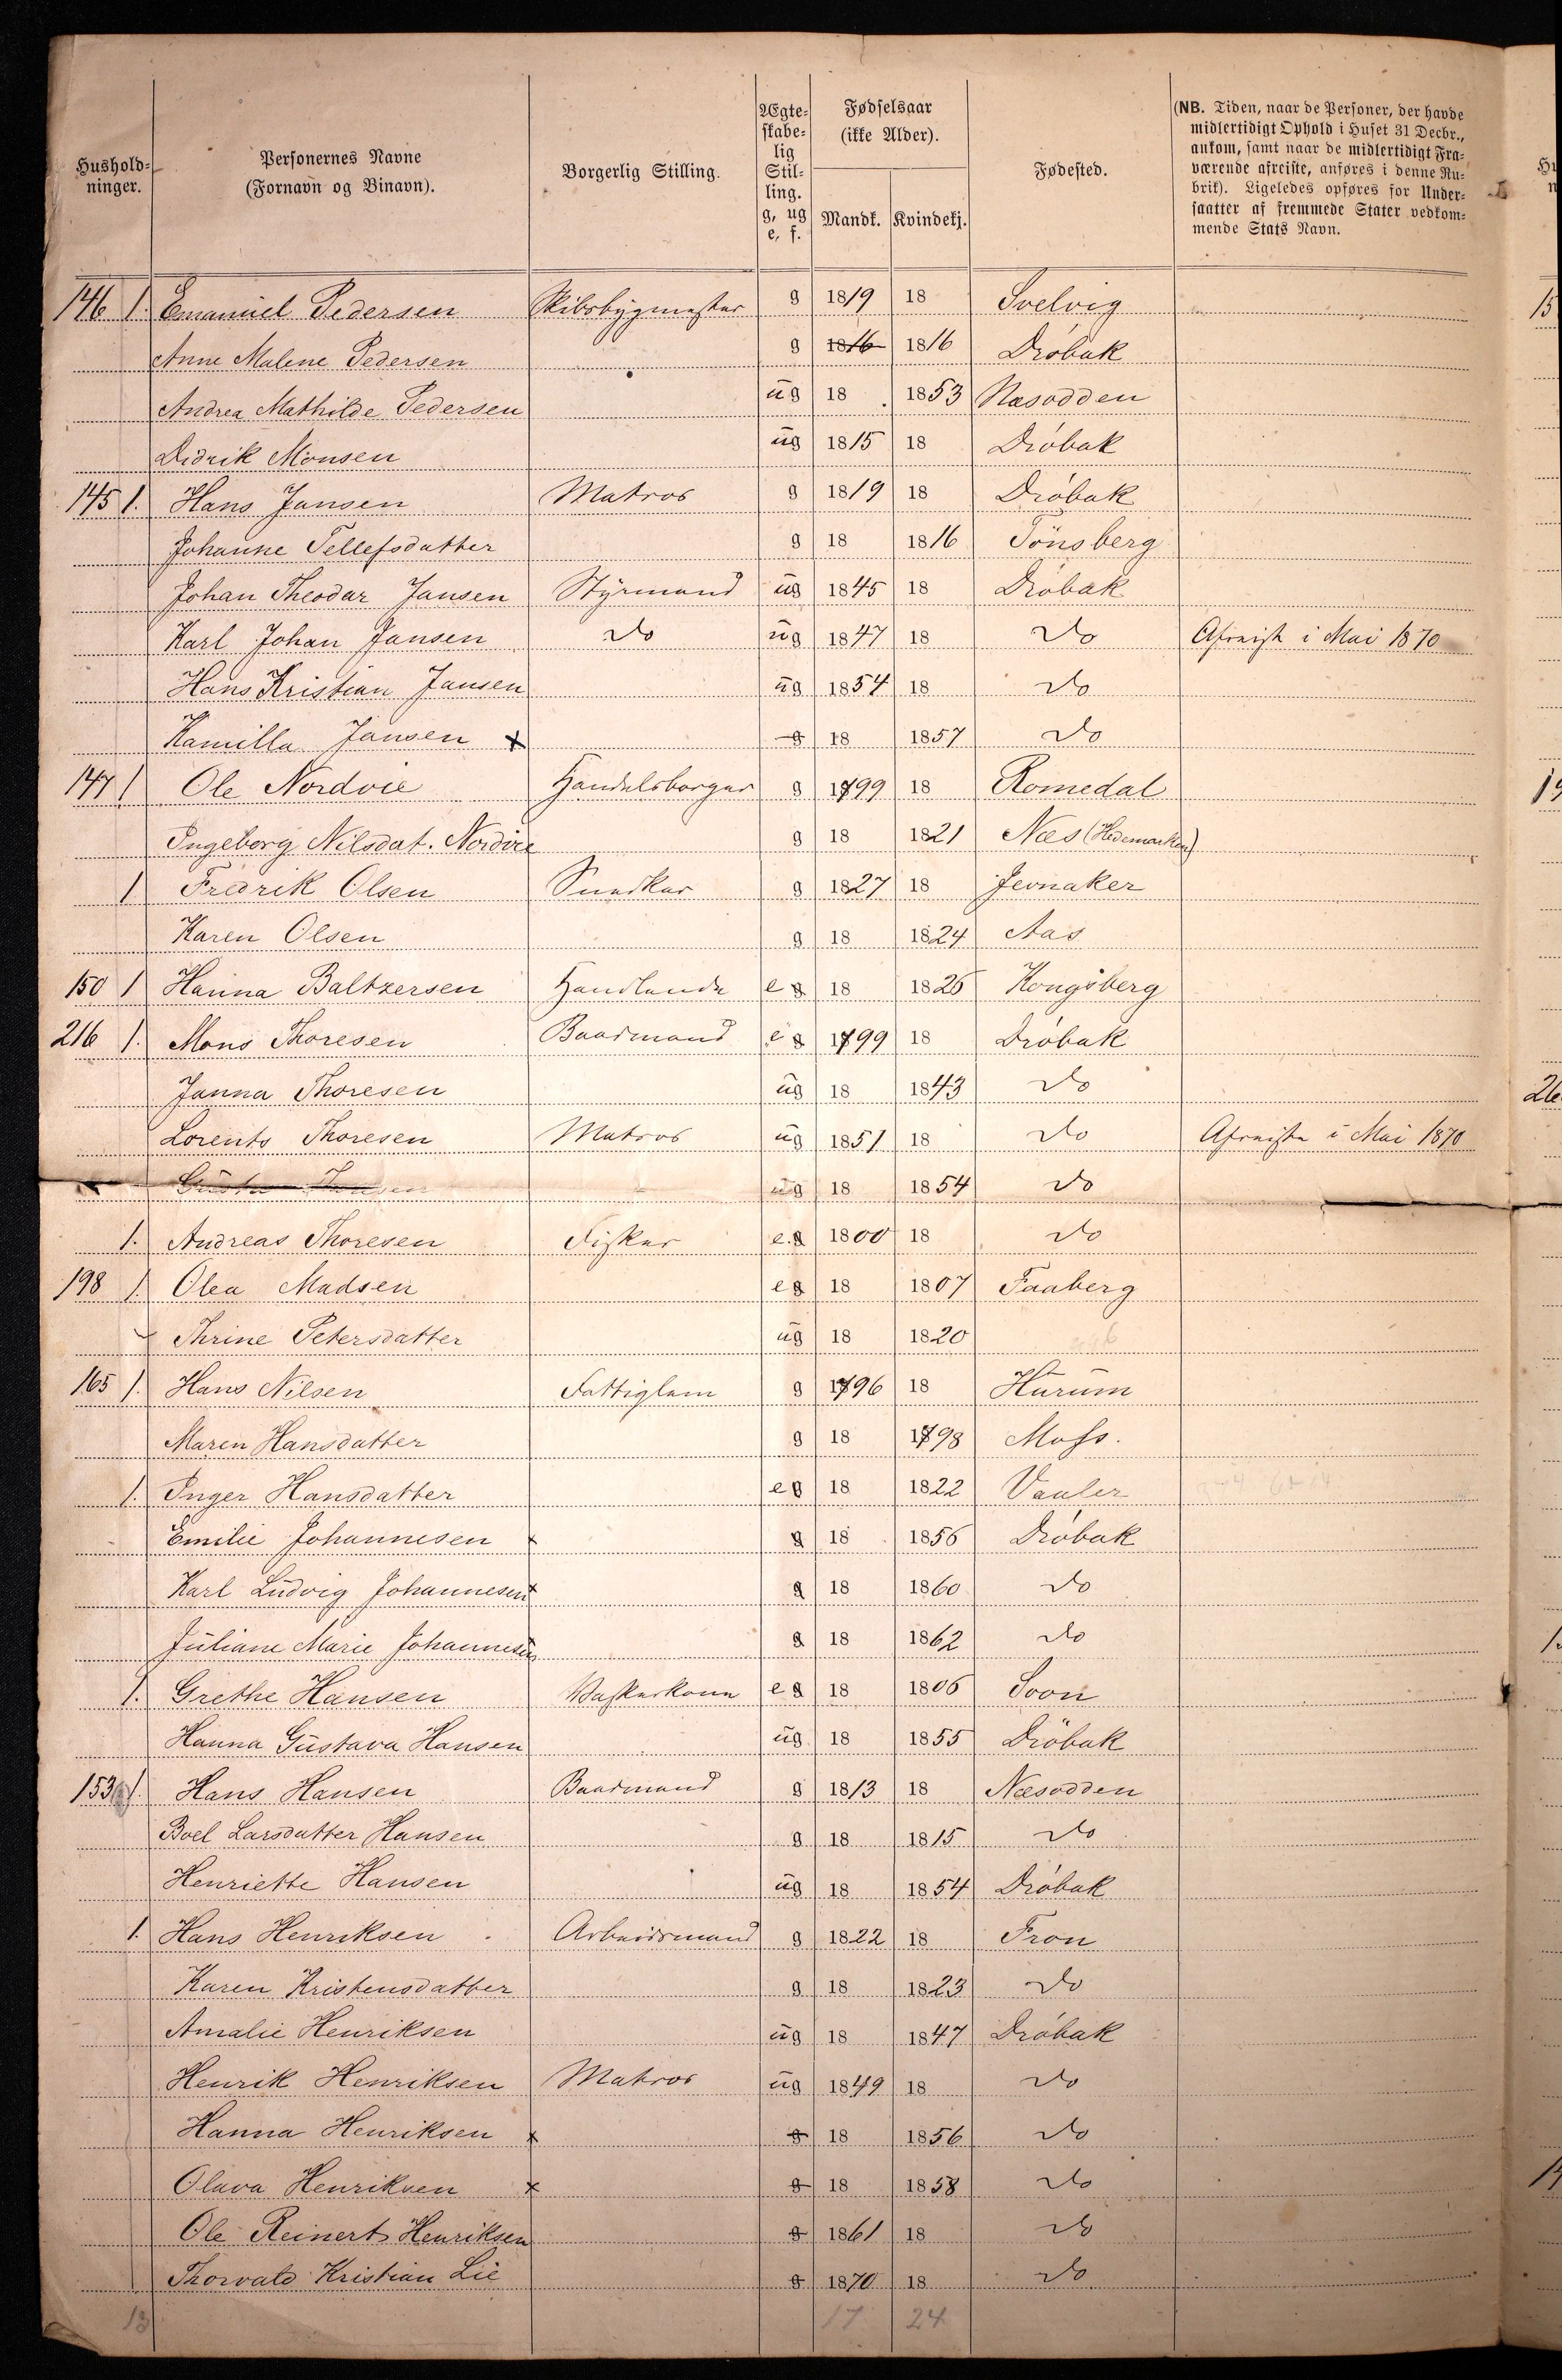 Hushold-ninger. | Personernes Navne (Fornavn og Binavn). | Borgerlig Stilling. | Ægte-skabe-lig Stil-ling. g, ug e, f. | Fødselsaar (ikke Alder). Mandk. | Kvindekj. | Fødested. | (NB. Tiden, naar de Personer, der havde midlertidigt Ophold i Huset 31 Decbr., ankom, samt naar de midlertidigt Fra-værende afreiste, anføres i denne Ru-brik). Ligeledes opføres for Under-saatter af fremmede Stater vedkom-mende Stats Navn.
146 1. Emanuel Pedersen | Skibsbygmester | g | 1819 | 18 | Svelvig
Anne Malene Pedersen | g | 1816 | 1816 | Dröbak
Andrea Mathilde Pedersen | ug | 18 | 1853 | Næsodden
Didrik Monsen | ug | 1815 | 18 | Dröbak
145 1. Hans Jansen | Matros | g | 1819 | 18 | Dröbak
Johanne Tellefsdatter | g | 18 | 1816 | Tönsberg
Johan Theodar Jansen | Styrmand | ug | 1845 | 18 | Dröbak
Karl Johan Jansen | Do | ug | 1847 | 18 | Do | Afreist i Mai 1870
Hans Kristian Jansen | ug | 1854 | 18 | Do
Kamilla Jansen x | g | 18 | 1857 | Do
147 1 Ole Nordvie | Handelsborger | g | 1799 | 18 | Romedal
Ingeborg Nilsdat. Nordvie | g | 18 | 1821 | Næs (Hedemarken)
1 Fredrik Olsen | Snedker | g | 1827 | 18 | Jevnaker
Karen Olsen | g | 18 | 1824 | Aas
150 1 Hanna Baltzersen | Handlende | e g | 18 | 1826 | Kongsberg
216 1. Mons Thoresen | Baadmand | e g | 1799 | 18 | Dröbak
Janna Thoresen | ug | 18 | 1843 | Do
Lorents Thoresen | Matros | ug | 1851 | 18 | Do | Afreiste i Mai 1870
ug | 18 | 1854 | Do
1. Andreas Thoresen | Fisker | e. g | 1800 | 18 | Do
198 1. Olea Madsen | e g | 18 | 1807 | Faaberg
Thrine Petersdatter | ug | 18 | 1820
165 1. Hans Nilsen | Fattiglem | g | 1796 | 18 | Hurum
Maren Hansdatter | g | 18 | 1798 | Moss.
1. Inger Hansdatter | e g | 18 | 1822 | Vaaler
Emilie Johannesen x | g | 18 | 1856 | Dröbak
Karl Ludvig Johannesen x | g | 18 | 1860 | Do
Juliane Marie Johannesen | g | 18 | 1862 | Do
1. Grethe Hansen | Vaskerkone | e g | 18 | 1806 | Soon
Hanna Gustava Hansen | ug | 18 | 1855 | Dröbak
153 1. Hans Hansen | Baadmand | g | 1813 | 18 | Næsodden
Boel Larsdatter Hansen | g | 18 | 1815 | Do
Henriette Hansen | ug | 18 | 1854 | Dröbak
1. Hans Henriksen | Arbeidsmand | g | 1822 | 18 | Fron
Karen Kristensdatter | g | 18 | 1823 | Do
Amalie Henriksen | ug | 18 | 1847 | Dröbak
Henrik Henriksen | Matros | ug | 1849 | 18 | Do
Hanna Henriksen x | g | 18 | 1856 | Do
Olava Henriksen x | g | 18 | 1858 | Do
Ole Reinert Henriksen | g | 1861 | 18 | Do
Thorvald Kristian Lie | g | 1870 | 18 | Do
13 | 17 | 24